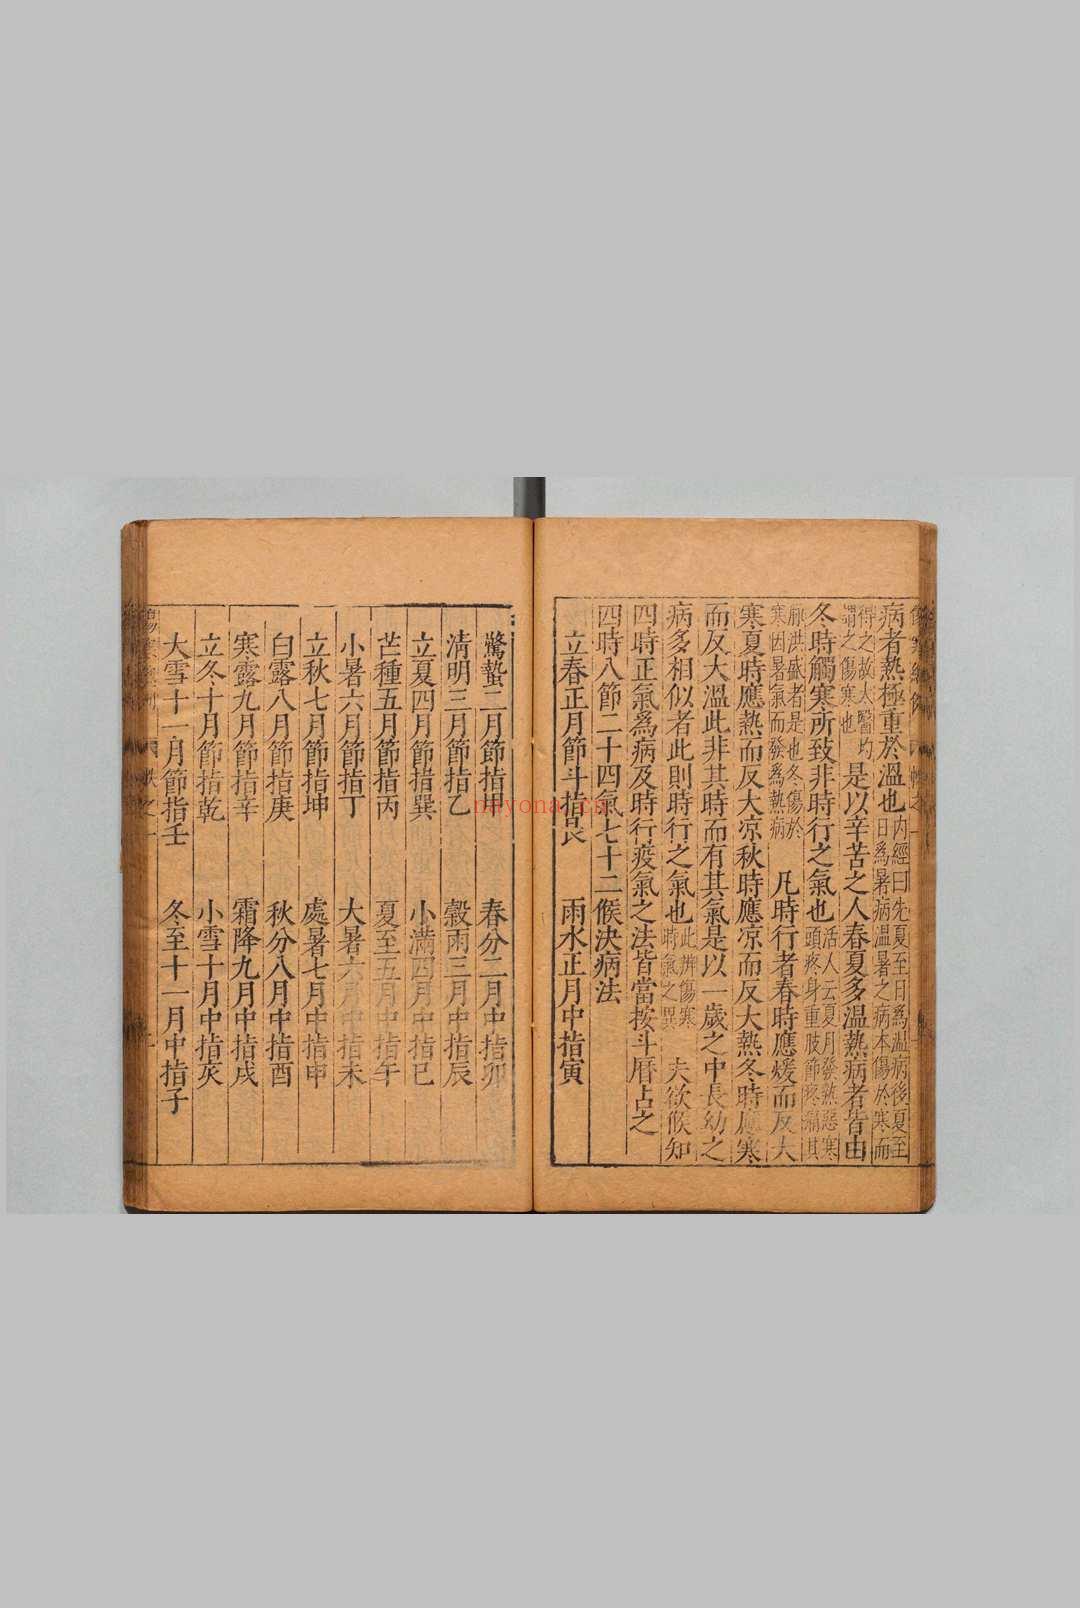 病者熱極重於溫也內經曰先夏至日爲溫病後夏至
日爲暑病溫暑之病本傷於寒而
得之故太醫均
謂之傷寒也
是以辛苦之人春夏多溫熱病者皆由
冬時觸寒所致非時行之氣也活人云夏月發熱惡寒
頭疼身重肢節疼痛其
脈洪盛者是也冬傷於
寒因暑氣而發爲熱病
凡時行者春時應煖而反大
寒夏時應熱而反大凉秋時應凉而反大熱冬時應寒
而反大溫此非其時而有其氣是以一歲之中長幼之
病多相似者此則時行之氣也此辨傷寒
時氣之異
夫欲候知
四時正氣爲病及時行疫氣之法皆當按斗曆占之
四時八節二十四氣七十二候決病法
立春正月節斗指艮 雨水正月中指寅
驚蟄二月節指甲 春分二月中指卯
清明三月節指乙 穀雨三月中指辰
立夏四月節指巽 小滿四月中指巳
芒種五月節指丙 夏至五月中指午
小暑六月節指丁 大暑六月中指未
立秋七月節指坤 處暑七月中指申
白露八月節指庚 秋分八月中指酉
寒露九月節指辛 霜降九月中指戌
立冬十月節指乾 小雪十月中指亥
大雪十一月節指壬 冬至十一月中指子
nayona.cn